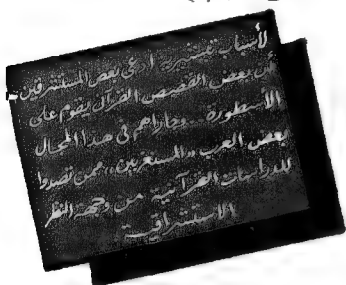 لأسباب تبشيرية ادعى بعض المستشرقين
أن بعض القصص القرآني يقوم على
الأسطورة .. وجاراهم في هذا المجال
بعض العرب «المستغربين» ممن تصدوا
للدراسات القرآنية من وجهة النظر
الاستشراقية